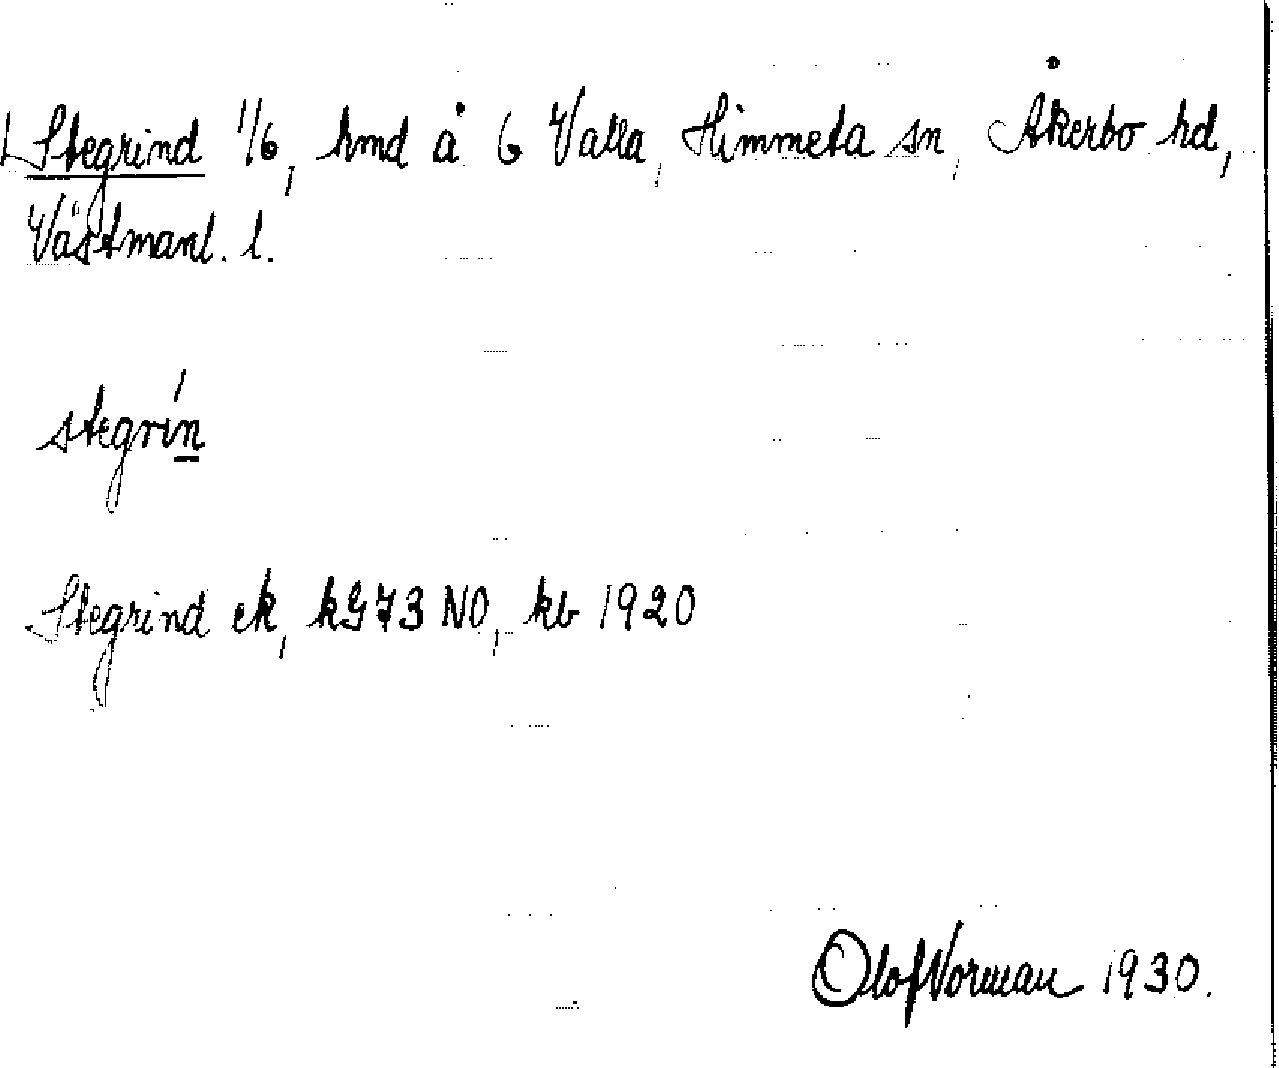 Stegrind 1/6, hmd å 6 Valla, Himmeta sn, Åkerbo hd,
Västmanl. l.
stegrín
Stegrind ek, kG73 NO, kb 1920
Olof Norman 1930.